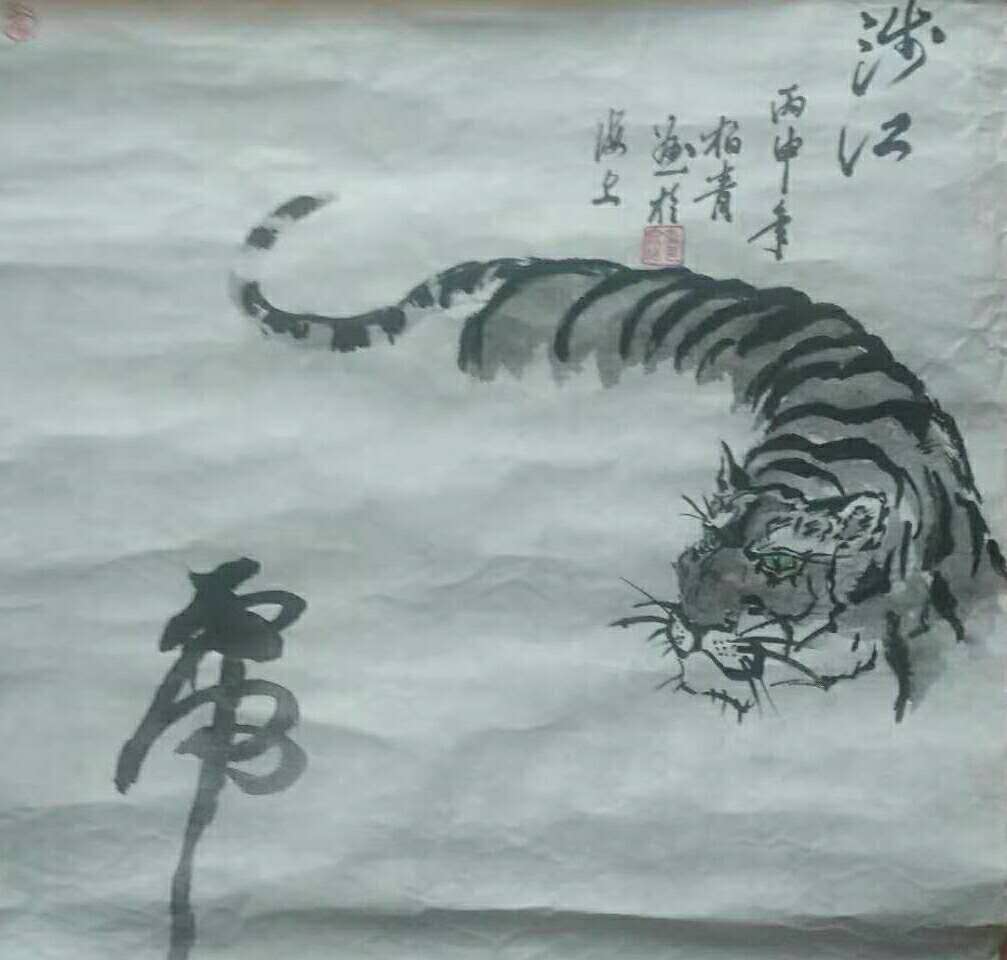 涉江
丙申年
柏青
画於
海上
虎